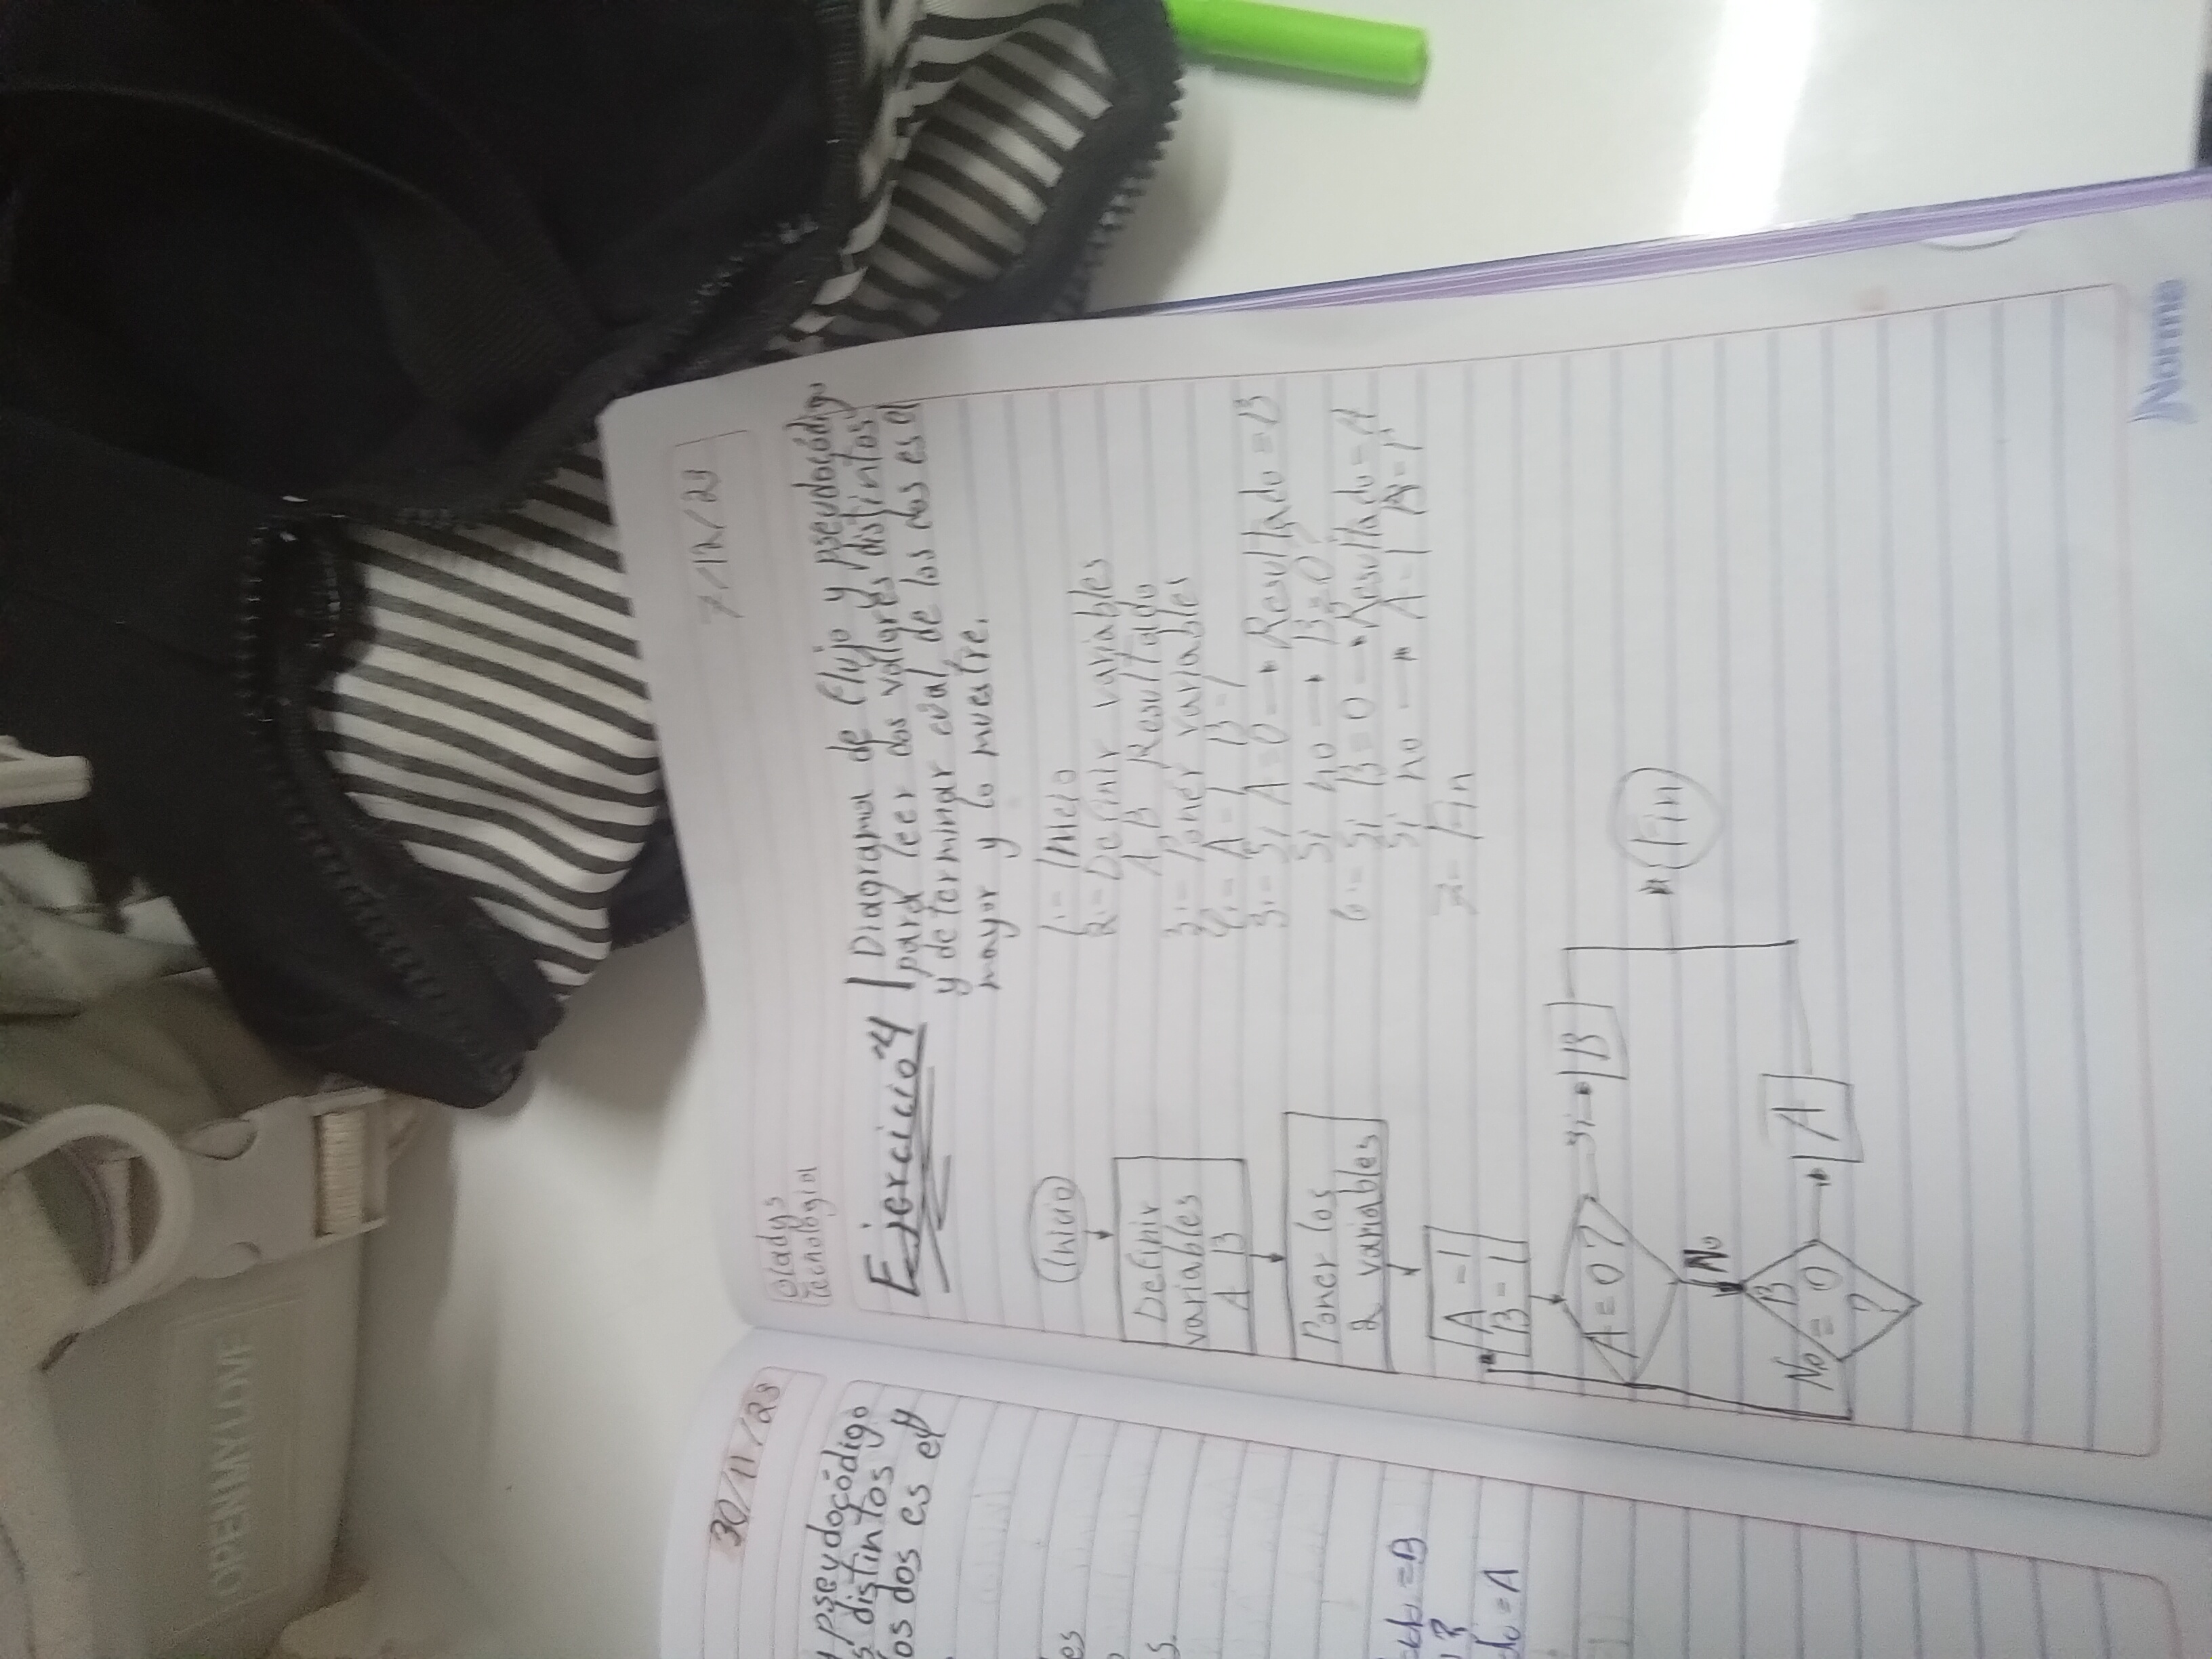 7/12/23
Gladys
Tecnología
Ejercicio 4
Diagrama de flujo y pseudocódigo
para leer dos valores distintos
y determinar cuál de los dos es el
mayor y lo muestre.
1.- Inicio
2.- Definir variables
A, B Resultado
3.- Poner variables
4.- A-1 B-1
5.- Si A=0 → Resultado = B
Si no → B=0?
6.- Si B=0 → Resultado = A
Si no → A-1 B-1
7- Fin
Inicio
Definir
variables
A B
Poner los
2 variables
A-1
B-1
A=0?
Si
B
Fin
No
B
=0
?
No
A
Norma
30/11/23
y pseudocódigo
s distintos y
los dos es el
es
s.
ado = B
?
do = A
OPENMYLOVE